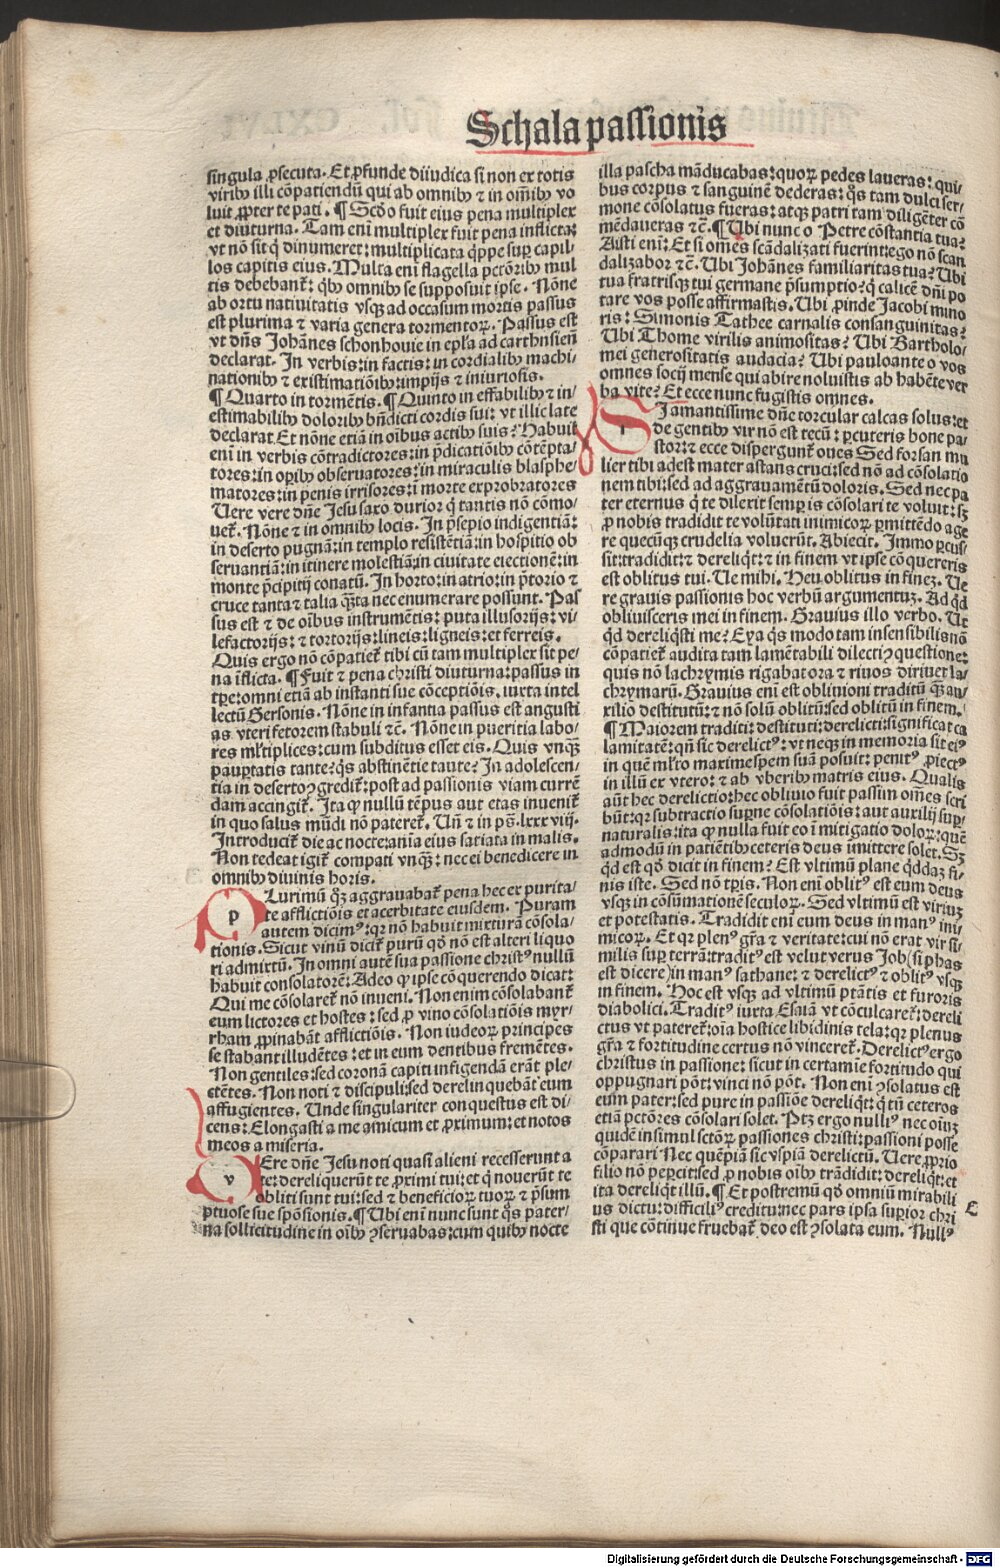 Schala passionis
singula ꝓsecuta. Et ꝓfunde diiudica si non ex totis
viribꝰ illi cōpatiendū qui ab omnibꝰ et in oīmbꝰ vo
luit ꝓpter te pati. ¶ Scd̄o fuit eius pena multiplex
et diuturna. Tam eni multiplex fuit pena inflicta:
vt nō sit q̇ dinumeret: multiplicata q̇ppe suꝑ capil/
los capitis eius. Multa eni flagella pctōribꝰ mul
tis debebant᷑: q̇bꝰ omnibꝰ se supposuit ipse. Nōne
ab ortu natiuitatis vsqꝫ ad occasum mortis passus
est plurima ⁊ varia genera tormentoꝝ. Passus est
vt dn̄s Johānes schonhouie in ep̄la ad carthusien̄
declarat. In verbis: in factis: in cordialibꝰ machi/
nationibꝰ ⁊ existimatiōibꝰ: impijs ⁊ iniuriosis.
¶ Quarto in tormētis. ¶ Quinto in effabilibꝰ ⁊ in/
estimabilibꝰ doloribꝰ bn̄dicti cordis sui: vt illic late
declarat Et nōne etiā in oībus actibꝰ suis? Habuit
eni in verbis cōtradictores: in p̄dicatiōibꝰ cōtēpta/
tores: in oꝑibꝰ obseruatores: in miraculis blasphe/
matores: in penis irrisores: ī morte exprobratores
Uere vere dn̄e Jesu saxo durior q̇ tantis nō cōmo/
uet᷑. Nōne ⁊ in omnibꝰ locis. In p̄sepio indigentiā:
in deserto pugnā: in templo resistētiā: in hospitio ob
seruantiā: in itinere molestiā: in ciuitate eiectionē: in
monte p̄cipitij conatū. In horto: in atrio: in p̄torio ⁊
cruce tanta ⁊ talia qꝫta nec enumerare possunt. Pas
sus est ⁊ de oībus instrumētis: puta illusorijs: vi/
lefactorijs: ⁊ tortorijs: lineis: ligneis: et ferreis.
Quis ergo nō cōpatiet᷑ tibi cū tam multiplex sit pe/
na iflicta. ¶ Fuit ⁊ pena christi diuturna: passus in
tꝑe: omni etiā ab instanti sue cōceptiōis. iuxta intel
lectū Gersonis. Nōne in infantia passus est angusti
as vteri fetorem stabuli ⁊c̄. Nōne in pueritia labo/
res ml̓tiplices: cum subditus esset eis. Quis vnqꝫ
pauꝑtatis tante? q̇s abstinētie tante? In adolescen/
tia in desertoꝫ gredit᷑: post ad passionis viam currē
dam accingit᷑. Ita ꝙ nullū tēpus aut etas inuenit᷑
in quo salus mūdi nō pateret᷑. Un̄ ⁊ in ps̄. lxxxviij.
Introducit᷑ die ac nocte: aīa eius satiata in malis.
Non tedeat igit᷑ compati vnqꝫ: nec ei benedicere in
omnibꝰ diuinis horis.
p Lurimū qꝫ aggrauabat᷑ pena hec ex purita/
te afflictiōis et acerbitate eiusdem. Puram
autem dicimꝰ: qꝛ nō habuit mixturā cōsola/
tionis. Sicut vinū dicit᷑ purū qd̄ nō est alteri liquo
ri admixtū. In omni autē sua passione christꝰ nullū
habuit consolatorē: Adeo ꝙ ipse cōquerendo dicat:
Qui me cōsolaret᷑ nō inueni. Non enim cōsolabant᷑
eum lictores et hostes: sed ꝓ vino cōsolatiōis myr/
rham ꝓpinabāt afflictiōis. Non iudeoꝝ principes
se stabant illudētes: et in eum dentibus fremētes.
Non gentiles: sed coronā capiti infigendā erāt ple/
ctētes. Non noti ⁊ discipuli: sed derelinquebāt᷑ eum
affugientes. Unde singulariter conquestus est di/
cens: Elongasti a me amicum et ꝓximum: et notos
meos a miseria.
v Ere dn̄e Jesu noti quasi alieni recesserunt a
te: dereliquerūt te ꝓximi tui: et q̇ nouerūt te
obliti sunt tui: sed ⁊ beneficioꝝ tuoꝝ ⁊ p̄sum
ptuose sue spōsionis. ¶ Ubi eni nunc sunt q̇s pater/
na sollicitudine in oībꝰ ꝯseruabas: cum quibꝰ nocte
illa pascha māducabas: quoꝝ pedes laueras: qui/
bus corpus ⁊ sanguinē dederas: q̇s tam dulci ser/
mone cōsolatus fueras: atqꝫ patri tam diligēter cō
mēdaueras ⁊c̄. ¶ Ubi nunc o Petre cōstantia tua?
Aisti eni: Et si om̄es scādalizati fuerint: ego nō scan
dalizabor ⁊c̄. Ubi Johānes familiaritas tua? Ubi
tua fratrisqꝫ tui germane p̄sumptio? q̇ calicē dn̄i po
tare vos posse affirmastis. Ubi ꝓinde Jacobi mino
ris: Simonis Tathee carnalis consanguinitas?
Ubi Thome virilis animositas? Ubi Bartholo/
mei generositatis audacia? Ubi pauloante o vos
omnes socij mense qui abire noluistis ab habēte ver
ba vite? Et ecce nunc fugistis omnes.
i Jamantissime dn̄e torcular calcas solus: et
de gentibꝰ vir nō est tecū: ꝑcuteris bone pa/
stor: ⁊ ecce dispergunt᷑ oues Sed forsan mu
lier tibi adest mater astans cruci: sed nō ad cōsolatio
nem tibi: sed ad aggrauamētū doloris. Sed nec pa
ter eternus q̇ te dilexit semꝑ is cōsolari te voluit: sꝫ
ꝓ nobis tradidit te volūtati inimicoꝝ ꝑmittēdo age
re quecūqꝫ crudelia voluerūt. Abiecit. Immo ꝑcus/
sit: tradidit: ⁊ dereliq̇t: ⁊ in finem vt ipse cōquereris
est oblitus tui. Ue mihi. Heu oblitus in finē. Ue
re grauis passionis hoc verbū argumentuꝫ. Ad qd̄
obliuisceris mei in finem. Grauius illo verbo. Ut
qd̄ dereliq̇sti me? Eya q̇s modo tam insensibilis nō
cōpatiet᷑ audita tam lamētabili dilectiꝫ questione:
quis nō lachrymis rigabat ora ⁊ riuos diriuet la/
chrymarū. Grauius eni est obliuioni traditū qꝫ au/
xilio destitutū: ⁊ nō solū oblitū: sed oblitū in finem.
¶ Maiorem traditi: destituti: derelicti: significat ca
lamitatē: qn̄ sic derelictꝰ: vt neqꝫ in memoria sit eiꝰ
in quē ml̓to maxime spem suā posuit: penitꝰ ꝓiectꝰ
in illū ex vtero: ⁊ ab vberibꝰ matris eius. Qualis
aūt hec derelictio: hec obliuio fuit passim om̄es scri
būt: qꝛ subtractio suꝑne cōsolatiōis: aut auxilij suꝑ/
naturalis: ita ꝙ nulla fuit eo ī mitigatio doloꝝ: quē
admodū in patiētibꝰ ceteris deus imittere solet. Sꝫ
qd̄ est qd̄ dicit in finem? Est vltimū plane qd̄daꝫ fi/
nis iste. Sed nō tꝑis. Non eni oblitꝰ est eum deus
vsqꝫ in cōsūmationē seculoꝝ. Sed vltimū est viriuꝫ
et potestatis. Tradidit eni eum deus in manꝰ ini/
micoꝝ. Et qꝛ plenꝰ gr̄a ⁊ veritate: cui nō erat vir si/
milis suꝑ terrā: traditꝰ est velut verus Job (si phas
est dicere) in manꝰ sathane: ⁊ derelictꝰ ⁊ oblitꝰ vsqꝫ
in finem. Hoc est vsqꝫ ad vltimū ptātis et furoris
diabolici. Traditꝰ iuxta Esaiā vt cōculcaret᷑: dereli
ctus vt pateret᷑: oīa hostice libidinis tela: qꝛ plenus
gr̄a ⁊ fortitudine certus nō vinceret᷑. Derelictꝰ ergo
christus in passione: sicut in certamīe fortitudo qui
oppugnari pōt: vinci nō pōt. Non eni ꝯsolatus est
eum pater: sed pure in passiōe dereliq̇t: q̇ tn̄ ceteros
etiā pctōres cōsolari solet. Ptꝫ ergo nulliꝰ nec oīuꝫ
quidē insimul sctōꝝ passiones christi: passioni posse
cōparari Nec quēpiā sic vspiā derelictū. Uere ꝓprio
filio nō peꝑcit: sed ꝓ nobis oībꝰ trādidit: dereliq̇t: et
ita dereliq̇t illū. ¶ Et postremū qd̄ omniū mirabili
us dictu: difficiliꝰ creditu: nec pars ipsa suꝑior chri
sti que cōtinue fruebat᷑ deo est ꝯsolata eum. Nullꝰ
C
Digitalisierung gefördert durch die Deutsche Forschungsgemeinschaft - DFG